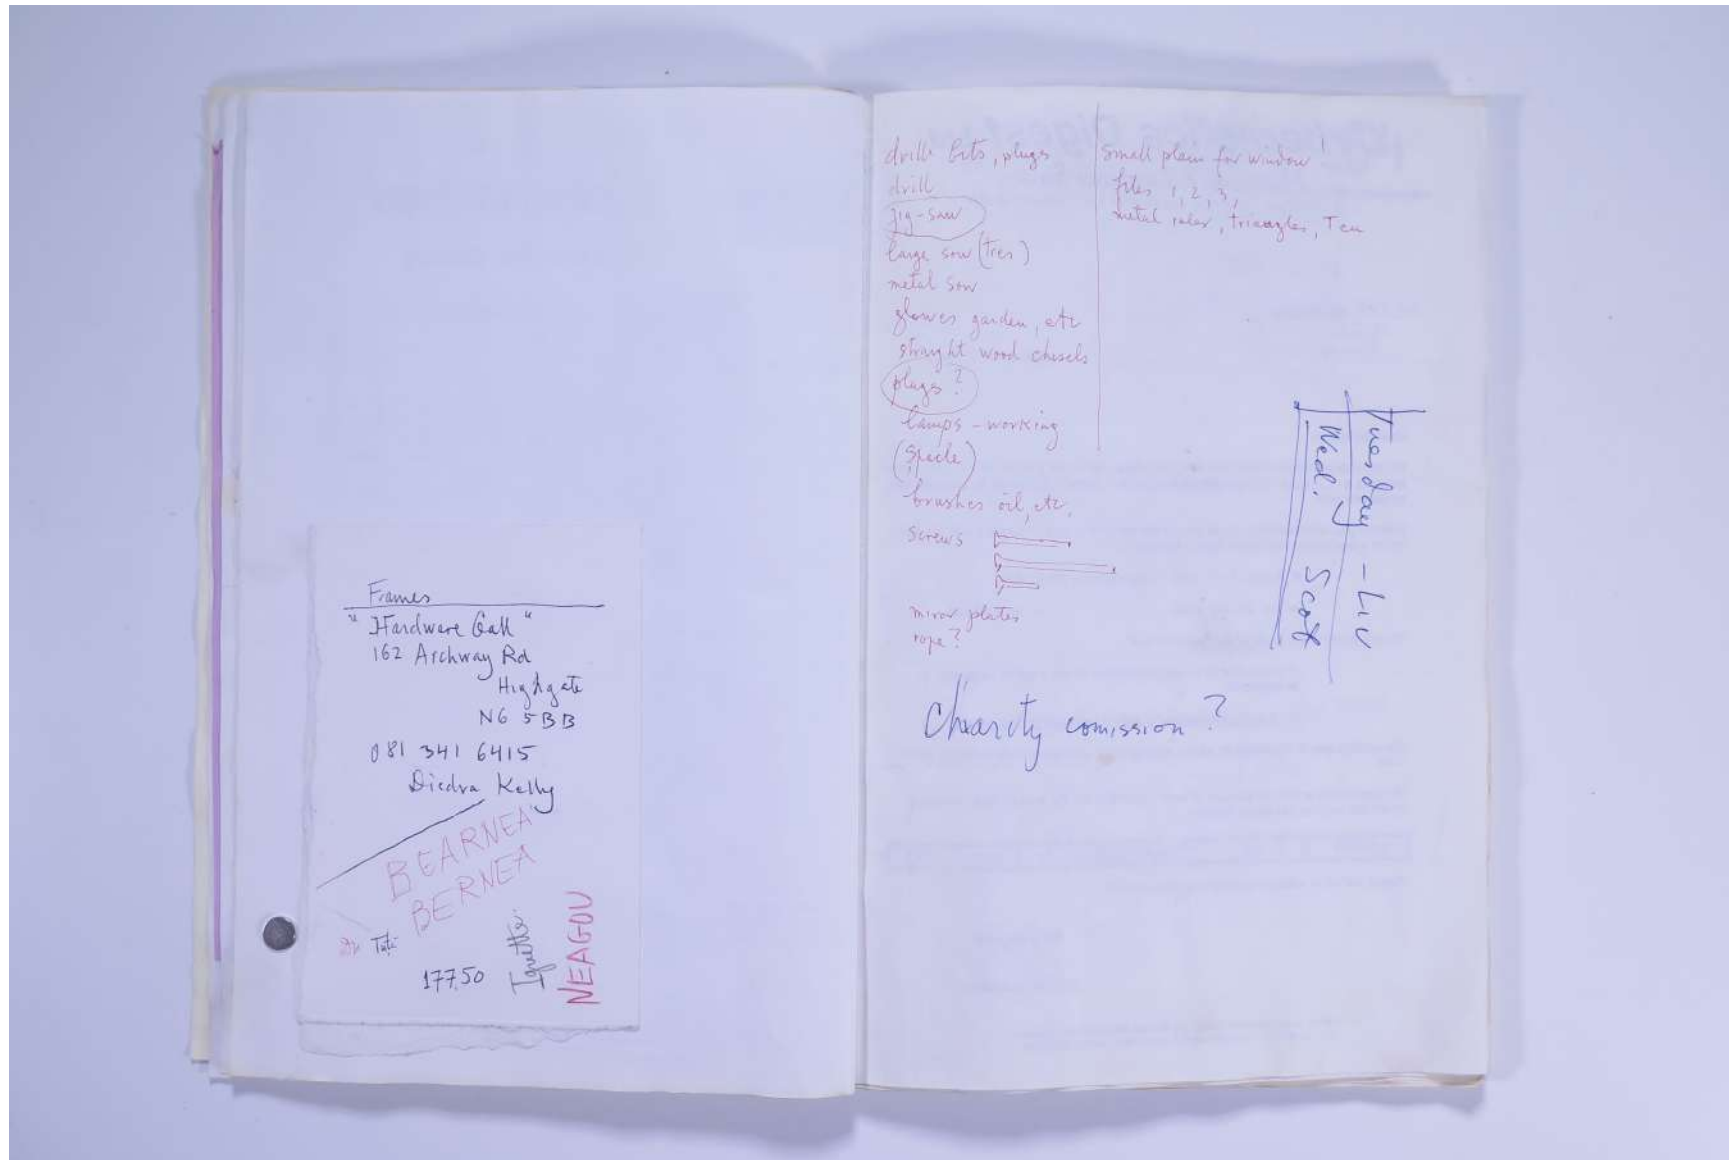 Frames
"Hardware Gall"
162 Archway Rd
Highgate
N6 5BB
081 341 6415
Diedra Kelly
BEARNEA
BERNEA
Tuti
177.50
NEAGOU
drill bits, plugs
drill
jig-saw
large saw (tres)
metal saw
glowes garden, etc
straight wood chisels
plugs?
lamps - working
brushes oil, etc.
screws
miror plates
rope?
small plain for window
files 1, 2, 3,
metal ruler, triangles, Teu
Tuesday - Liv
Wed. Scot
Charity comission?